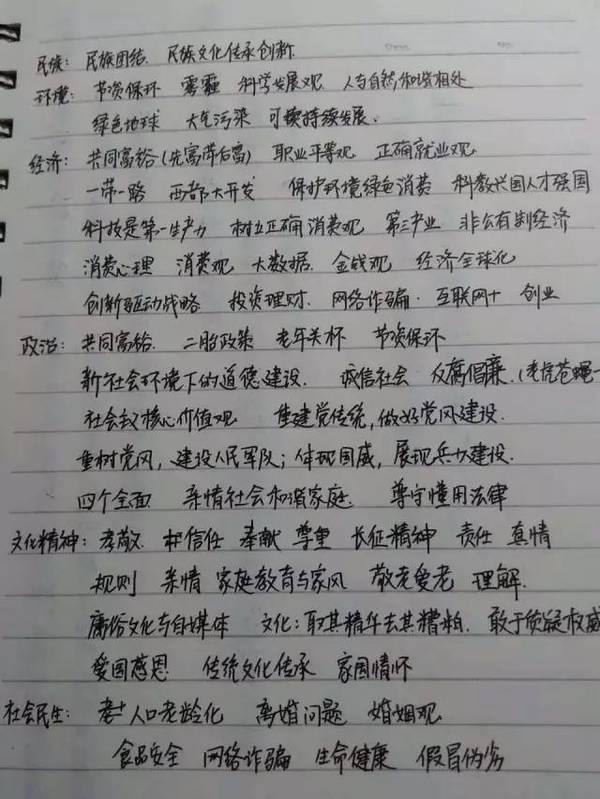 民族：民族团结 民族文化传承创新
环境：节资保环 雾霾 科学发展观 人与自然和谐相处
绿色地球 大气污染 可持续发展
经济：共同富裕(先富带后富) 职业平等观 正确就业观
一带一路 西部大开发 保护环境绿色消费 科教兴国人才强国
科技是第一生产力 树立正确消费观 第三产业 非公有制经济
消费心理 消费观 大数据 金钱观 经济全球化
创新驱动战略 投资理财 网络诈骗 互联网+ 创业
政治：共同富裕 二胎政策 老年关怀 节资保环
新社会环境下的道德建设 诚信社会 反腐倡廉(老虎苍蝇一
社会主义核心价值观 重建党传统,做好党风建设
重树党风,建设人民军队;体现国威,展现兵力建设
四个全面 亲情社会和谐家庭 尊守懂用法律
文化精神：孝敬 信任 奉献 尊重 长征精神 责任 真情
规则 亲情 家庭教育与家风 敬老爱老 理解
庸俗文化与自媒体 文化：取其精华去其糟粕 敢于质疑权威
爱国感恩 传统文化传承 家国情怀
社会民生： 人口老龄化 离婚问题 婚姻观
食品安全 网络诈骗 生命健康 假冒伪劣